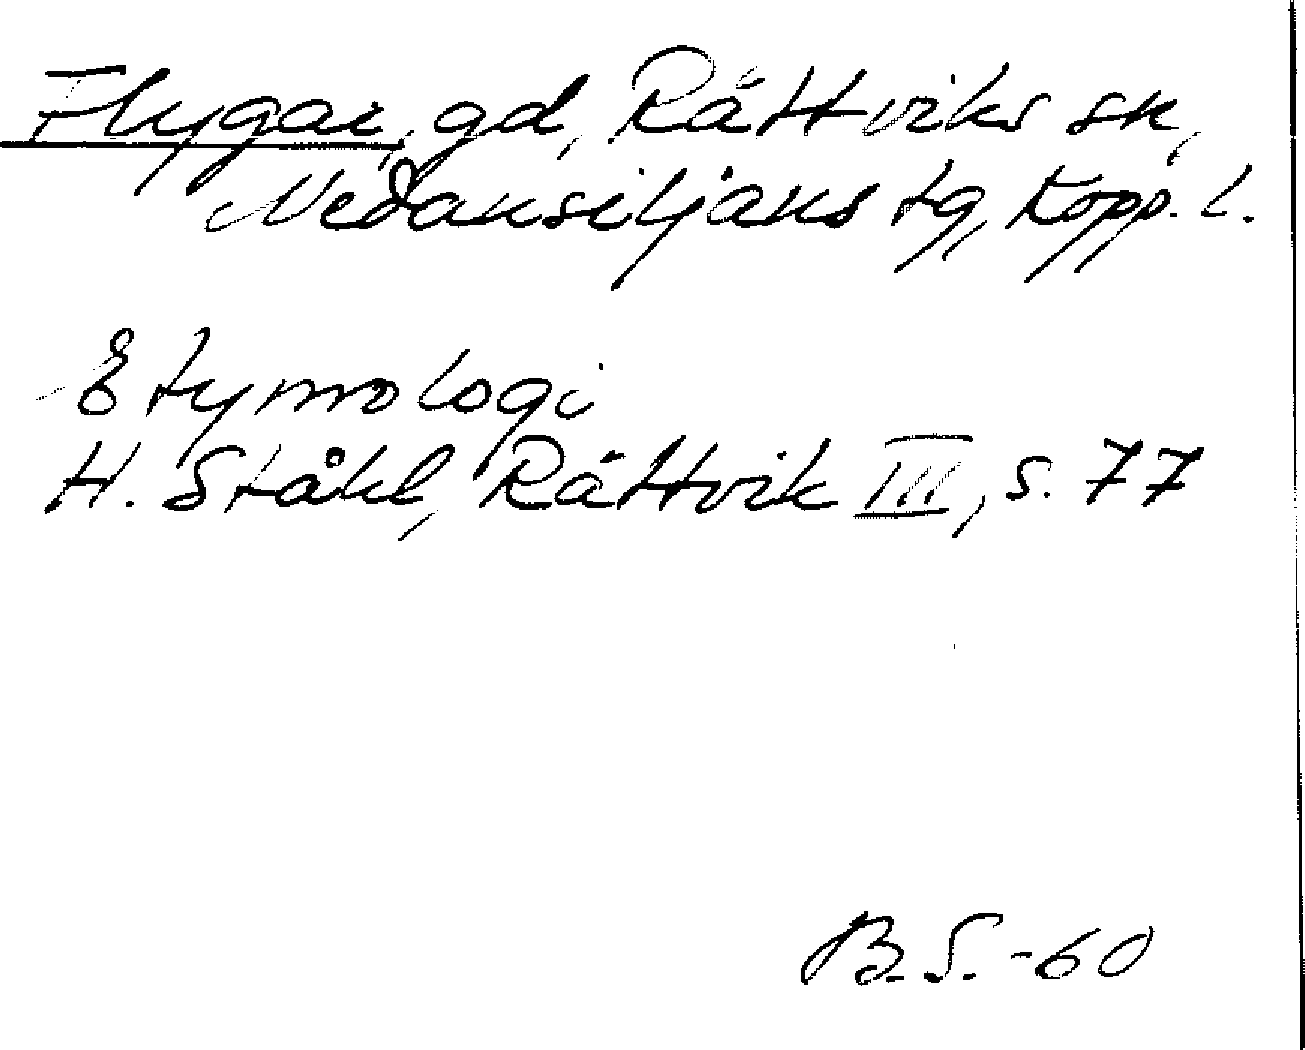 Flygar, gd, Rättviks sn,
Nedansiljans tg, Kopp. l.
Etymologi
H. Ståhl, Rättvik III, s. 77
B.S.-60